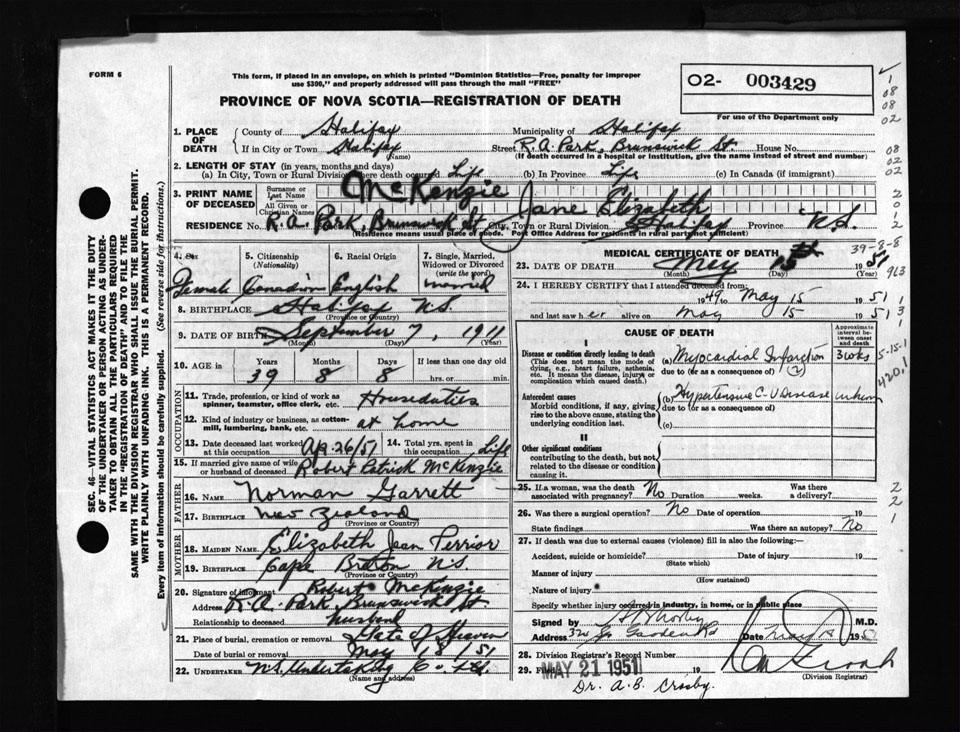 FORM 6
This form, if placed in an envelope, on which is printed "Dominion Statistics—Free, penalty for improper
use $300," and properly addressed will pass through the mail "FREE"
PROVINCE OF NOVA SCOTIA—REGISTRATION OF DEATH
O2- 003429
For use of the Department only
1
08
08
02
08
02
02
2
0
1
2
SEC. 46—VITAL STATISTICS ACT MAKES IT THE DUTY
OF THE UNDERTAKER OR PERSON ACTING AS UNDER-
TAKER TO OBTAIN ALL THE PARTICULARS REQUIRED
IN THE "REGISTRATION OF DEATH" AND TO FILE THE
SAME WITH THE DIVISION REGISTRAR WHO SHALL ISSUE THE BURIAL PERMIT.
WRITE PLAINLY WITH UNFADING INK. THIS IS A PERMANENT RECORD.
Every item of information should be carefully supplied. (See reverse side for instructions.)
1. PLACE OF DEATH County of Halifax Municipality of Halifax
If in City or Town Halifax (Name) Street R.A. Park, Brunswick St. House No.
(If death occurred in a hospital or institution, give the name instead of street and number)
2. LENGTH OF STAY (in years, months and days)
(a) In City, Town or Rural Division where death occurred Life (b) In Province Life (c) In Canada (if immigrant)
3. PRINT NAME OF DECEASED Surname or Last Name McKenzie
All Given or Christian Names Jane Elizabeth
RESIDENCE No. R.A. Park, Brunswick St City, Town or Rural Division Halifax Province N.S.
(Residence means usual place of abode. Post Office Address for residents in rural parts not sufficient)
4. Sex Female
5. Citizenship (Nationality) Canadian
6. Racial Origin English
7. Single, Married, Widowed or Divorced (write the word) married
8. BIRTHPLACE Halifax N.S.
(Province or Country)
9. DATE OF BIRTH September 7, 1911
(Month) (Day) (Year)
10. AGE in Years Months Days If less than one day old
39 8 8 hrs. or min.
OCCUPATION
11. Trade, profession, or kind of work as
spinner, teamster, office clerk, etc. Houseduties
12. Kind of industry or business, as cotton-
mill, lumbering, bank, etc. at home
13. Date deceased last worked at this occupation Ap. 26/51 14. Total yrs. spent in this occupation Life
15. If married give name of wife
or husband of deceased Robert Patrick McKenzie
FATHER
16. NAME Norman Garrett
17. BIRTHPLACE New Zealand
(Province or Country)
MOTHER
18. MAIDEN NAME Elizabeth Jean Perrior
19. BIRTHPLACE Cape Breton N.S.
(Province or Country)
20. Signature of informant Robert McKenzie
Address R.A. Park, Brunswick St
Relationship to deceased Husband
21. Place of burial, cremation or removal Gate of Heaven
Date of burial or removal May 18/51
22. UNDERTAKER N.S. Undertaking Co. Ltd.
(Name and address)
MEDICAL CERTIFICATE OF DEATH
39-8-8
23. DATE OF DEATH May 15th 1951
(Month) (Day) (Year)
913
24. I HEREBY CERTIFY that I attended deceased from:
1949 to May 15 1951
and last saw her alive on May 15 1951
1
3
1
CAUSE OF DEATH
Approximate interval between onset and death
I
Disease or condition directly leading to death
(This does not mean the mode of
dying, e.g., heart failure, asthenia,
etc. It means the disease, injury or
complication which caused death.)
(a) Myocardial Infarction (2) 3 wks
due to (or as a consequence of)
5-15-1
420.1
Antecedent causes
Morbid conditions, if any, giving
rise to the above cause, stating the
underlying condition last.
(b) Hypertensive C-V Disease unknown
due to (or as a consequence of)
(c)
II
Other significant conditions
contributing to the death, but not
related to the disease or condition
causing it.
25. If a woman, was the death
associated with pregnancy? No Duration weeks. Was there a delivery?
26. Was there a surgical operation? No Date of operation 19
State findings Was there an autopsy? No
2
2
1
27. If death was due to external causes (violence) fill in also the following:—
Accident, suicide or homicide? Date of injury 19
(State which)
Manner of injury
(How sustained)
Nature of injury
Specify whether injury occurred in industry, in home, or in public place
Signed by M.D.
Address Date May 18 195
28. Division Registrar's Record Number
29. Filed MAY 21 1951
(Division Registrar)
Dr. A.B. Crosby.